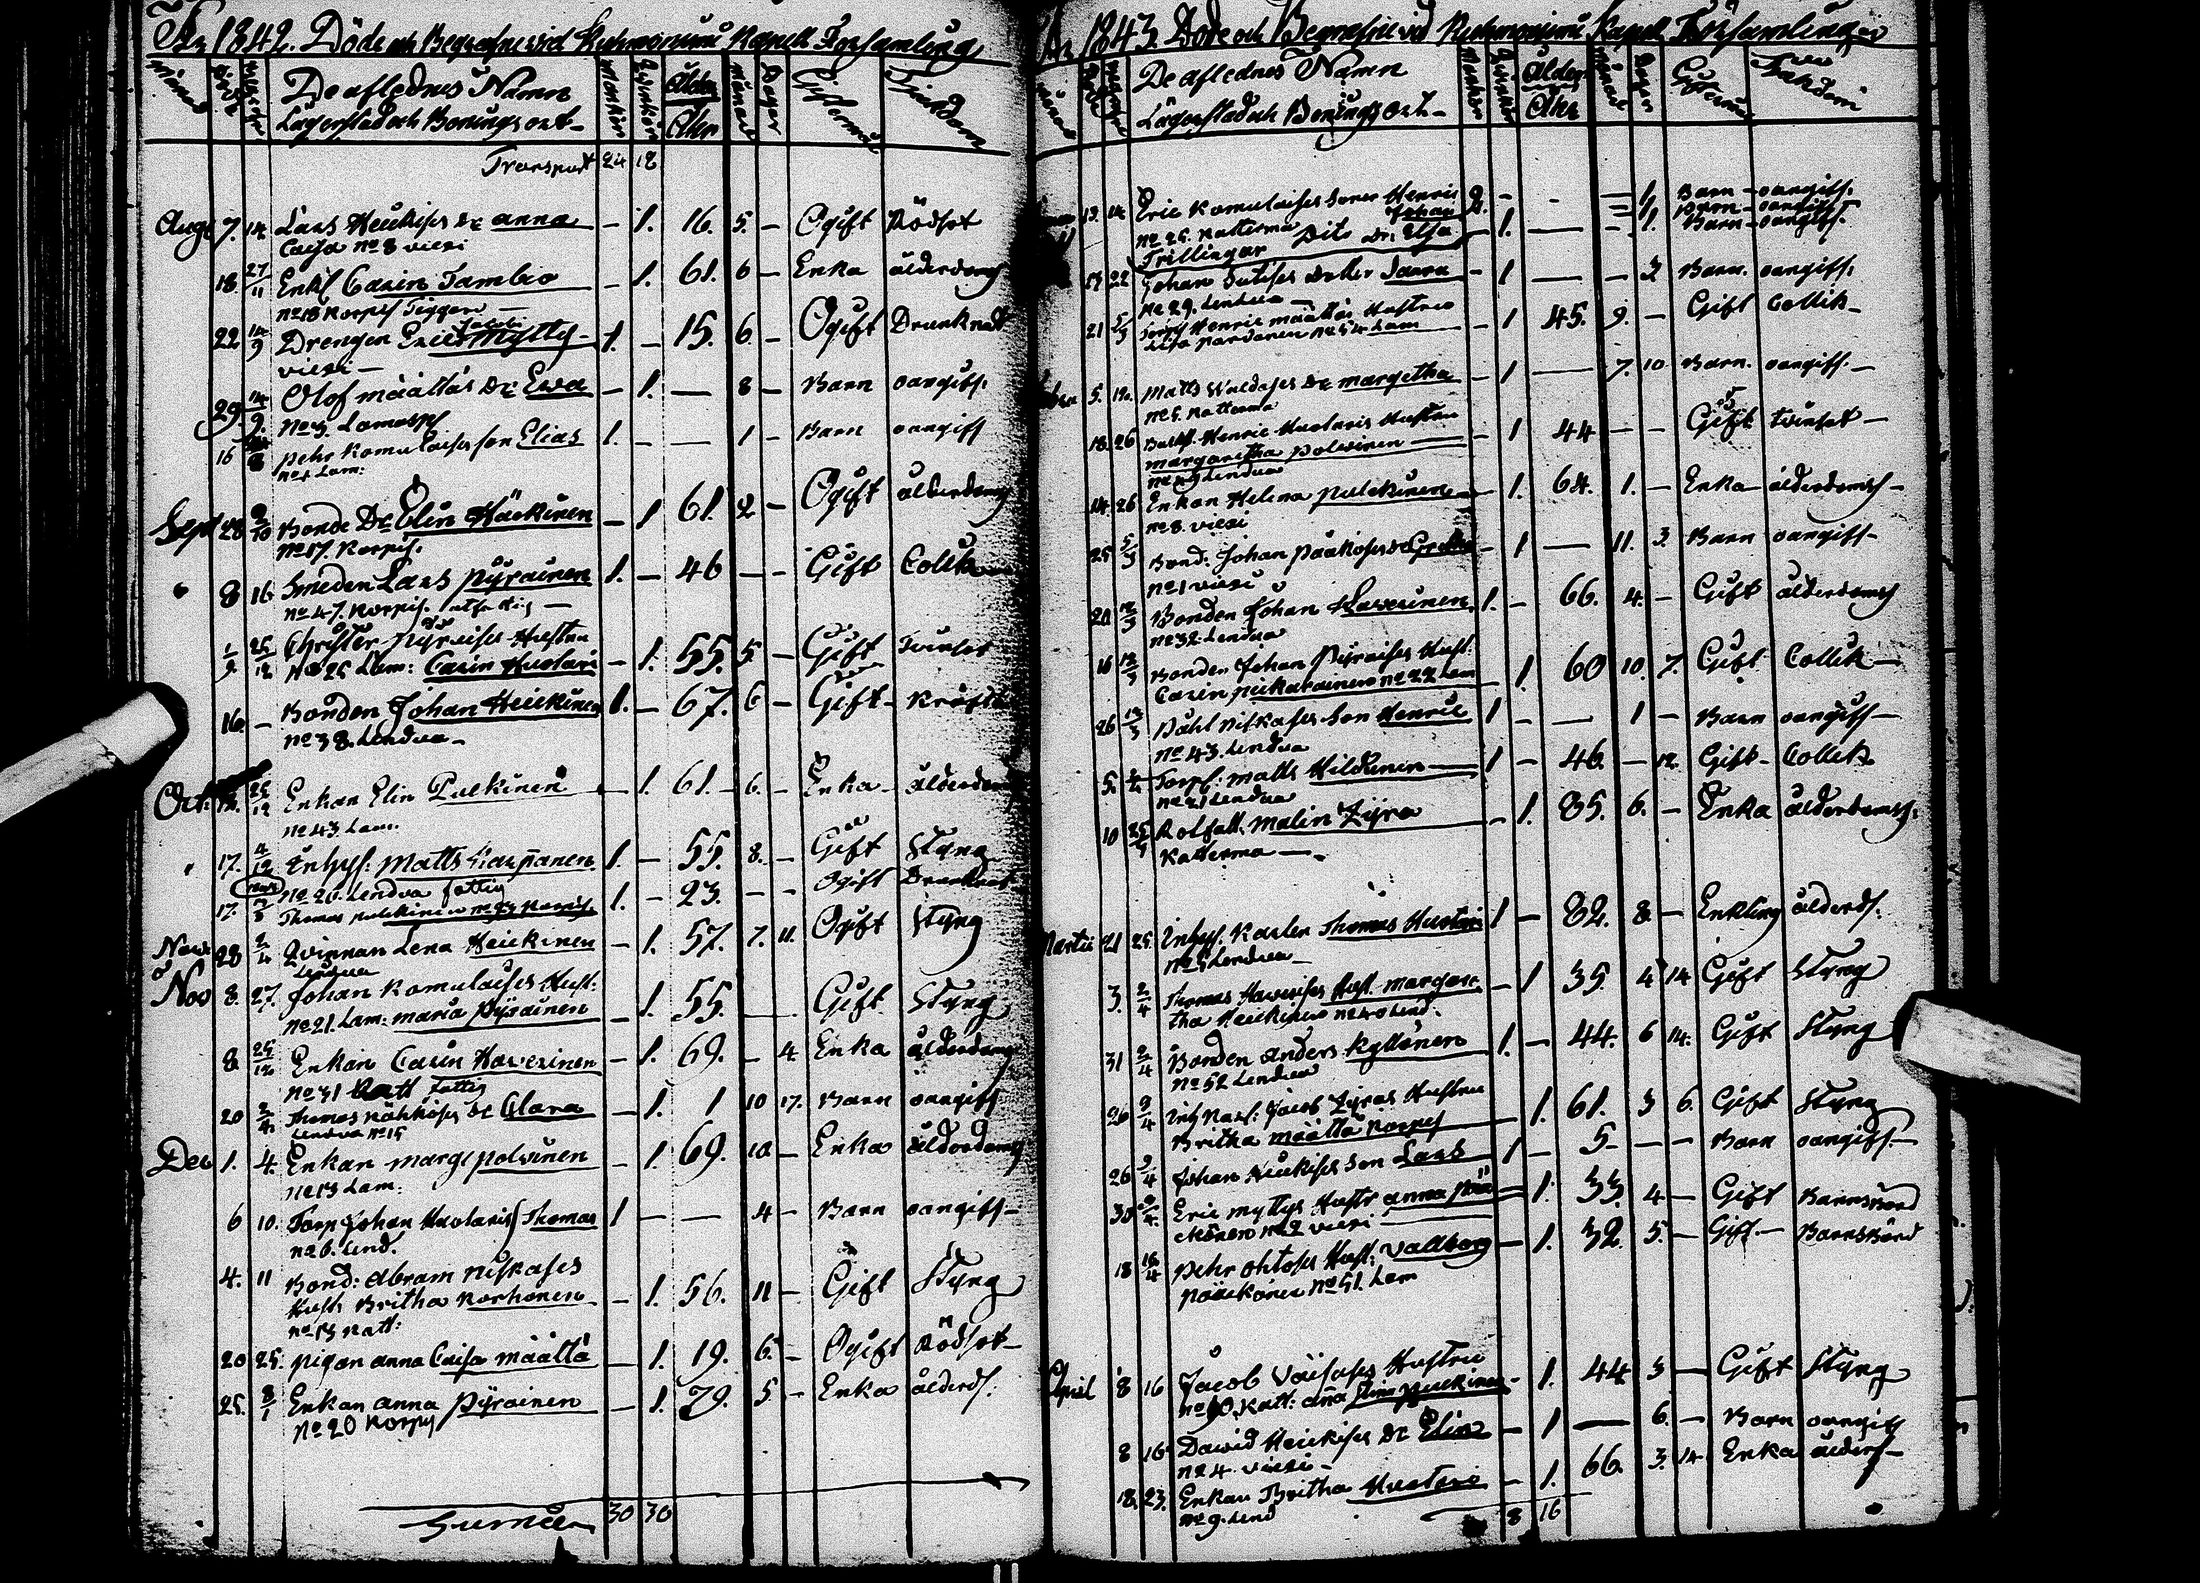 År 1842. Döde och Begrafne vid Kuhmoniemi Kapell Församling
Månad
De aflednes Namn
Lägerstad och Boningsort
Mankön
Qvinkön
Ålder
Åhr
Månad
Dagar
Giftermål
Siukdom
Transport 24 12
Aug: 7. 14 Lars Heikises Dr anna — 1. 16. 5. — Ogift Rödsot
Caisa No 8 viexi
18. 27/11 Enkl Carin Tambio — 1. 61. 6 — Enka ålderdoms
No 18 Korpis Tiggare —
22 14/9 Drengen Eric Mylly — 1. — 15. 6. — Ogift Drunknat
viexi —
29. 14/9 Olof Määttäs Dr Ewa — 1. — 8 — Barn oangifs.
No 3. Lamasps
16 Pehr Komulaises son Elias 1. — — 1 — Barn oangifs
No 1 Lam:
Sept 28 2/10 Bonde Dr Elin Häikinen — 1 61. 2 — Ogift ålderdoms
No 17. Korpis.
8 16. Smeden Lars Pyrainen 1. — 46 — — Gift Colik
No 47. Korpis.
1/9. 25/12 Christer Pyraises Hustru
No 25 Lam: Carin Huotari — 1. 55. 5. — Gift Tvinsot
16. — Bonden Johan Heickinen 1. — 67. 6 — Gift — Kräfta
No 38. Lendua —
Oct: 25/12 Enkan Elin Pulkinen — 1. 61. — 6. — Enka — ålderdoms
No 43. Lam.
17. 4/12 Inhys: Matts Karppanen. 1. — 55. 8. — Gift Styng
No 26. Lendua fattig
17. Thomas Pulckinen No 43 Korpis. 1. — 23. — — Ogift Drunknat
Nov: 28 2/4 Qvinnan Lena Heickinen — 1. 57. 7. 11. Ogift Styng
Lendua
Nov 8. 27. Johan Komulaises Hust:
No 21. Lam: Maria Pyrainen — 1. 55. — Gift Styng
8. 25/12 Enkan Carin Haverinen — 1. 69. — 4 Enka ålderdoms
No 31 Katt fattig
20 2/4. Thomas Kähköises Dr Clara — 1. 1 10 17. Barn oangifs
Lendua No 15
Dec 1. 4. Enkan Marg: Polvinen — 1. 69. 10. — Enka ålderdoms
No 13 Lam:
6 10. Torp Johan Huotaris S Thomas 1 — — 4 — Barn oangifs —
No 6. Lend.
4. 11 Bond: Abram Niskases
Hustr Britha Korhonen — 1. 56. 11 — Gift Styng
No 13 Katt:
20 25. Pigan Anna Caisa Määttä — 1. 19. 6. — Ogift Rödsot —
25. 8/1 Enkan Anna Pyrainen — 1. 79. 5. — Enka ålderds.
No 20 Korpis
Summa 30 30
År 1843. Döde och Begrafne vid Kuhmoniemi Kapell Församling
Månad
De aflednes Namn
Lägerstad och Boningsort —
Mankön
Qvinkön
Ålder
Åhr
Månad
Dagar
Giftermål
Siukdom
13. 14 Eric Komulaises Soner Henric 2. — — — 1. Barn — oangifs.
Johan — 1. Barn — oangifs
No 25. Katterma Dito Dr: Elsa — 1. — — 1. Barn — oangifs.
Trillingar
17 22 Johan Dotter Saara — 1 — — 3 Barn. oangifs.
No 29. Lendua —
21 5/3 Henric Määttäs Hustru — 1 45. 9. — Gift Collik —
Lisa No 54 Lam
5. 12. Matts Dr Margetha — 1 — 7. 10 Barn. oangifs. —
No 5. Katterma
18. 26 Henric Huotaris Hustru — 1 44 — — Gift tvinsot —
Margaretha Polvinen —
No 49 Lendua
14. 26 Enkan Helena Pulckinen — 1. 64. 1. — Enka ålderdoms —
No 8. viexi
25 5/3 Bond: Johan Pääkoses Dr — 1 — 11. 3. Barn oangifs —
No 1 viexi
20 12/3 Bonden Johan Haverinen 1. — 66. 4. — Gift ålderdoms
No 32 Lendua
16 12/3 Bonden Johan Pyraises Hust.
Carin Pickarainen No 22 Lam — 1. 60 10. 7. Gift Collik —
26 12/3 Påhl Niskases Son Henric 1 — — 1 — Barn oangifs —
No 43. Lendua
5. Torp: Matts Hiltunen — 1 — 46. — 12. Gift — Collik
No 21 Lendua
10 Malin Zyra — 1. 85. 6. — Enka ålderdoms:
Katterma —
Martii 21 25. Inhys. Karlen Thomas Huotari 1 — 82. 8. — Enkling ålderds.
No 5 Lendua —
3. 2/4 Thomas Haverises Hust. Margare- — 1 35. 4 14 Gift Styng
tha Heickinen No 40 Lend.
31 2/4 Bonden Anders Kyllönen 1. — 44. 6 14. Gift Styng
No 52 Lendua
26 9/4 Jacob Zyras Hustru
Britha Määttä Korpis — 1. 61. 3 6. Gift Styng
26 9/4 Johan Heickises Son Lars 1 — 5. — — Barn oangifs. —
30 Eric Myllys Hustr Anna — 1. 33. 4 — Gift Barnsbörd
No 2 viexi
18 16/4 Pehr Ohtoses Hust: Vallborg — 1. 32. 5. — Gift — Barnsbörd
No 51. Lam
April 8 16 Jacob Väisäses Hustru
No 10. Katt: Anna Pulckinen — 1. 44 3 — Gift Styng
8 16 David Heickises Dr Elin — 1 — 6. — Barn oangifs
No 4. viexi —
18. 23. Enkan Britha Huotari — 1. 66. 3. 14. Enka ålders —
No 9. Lend
8 16